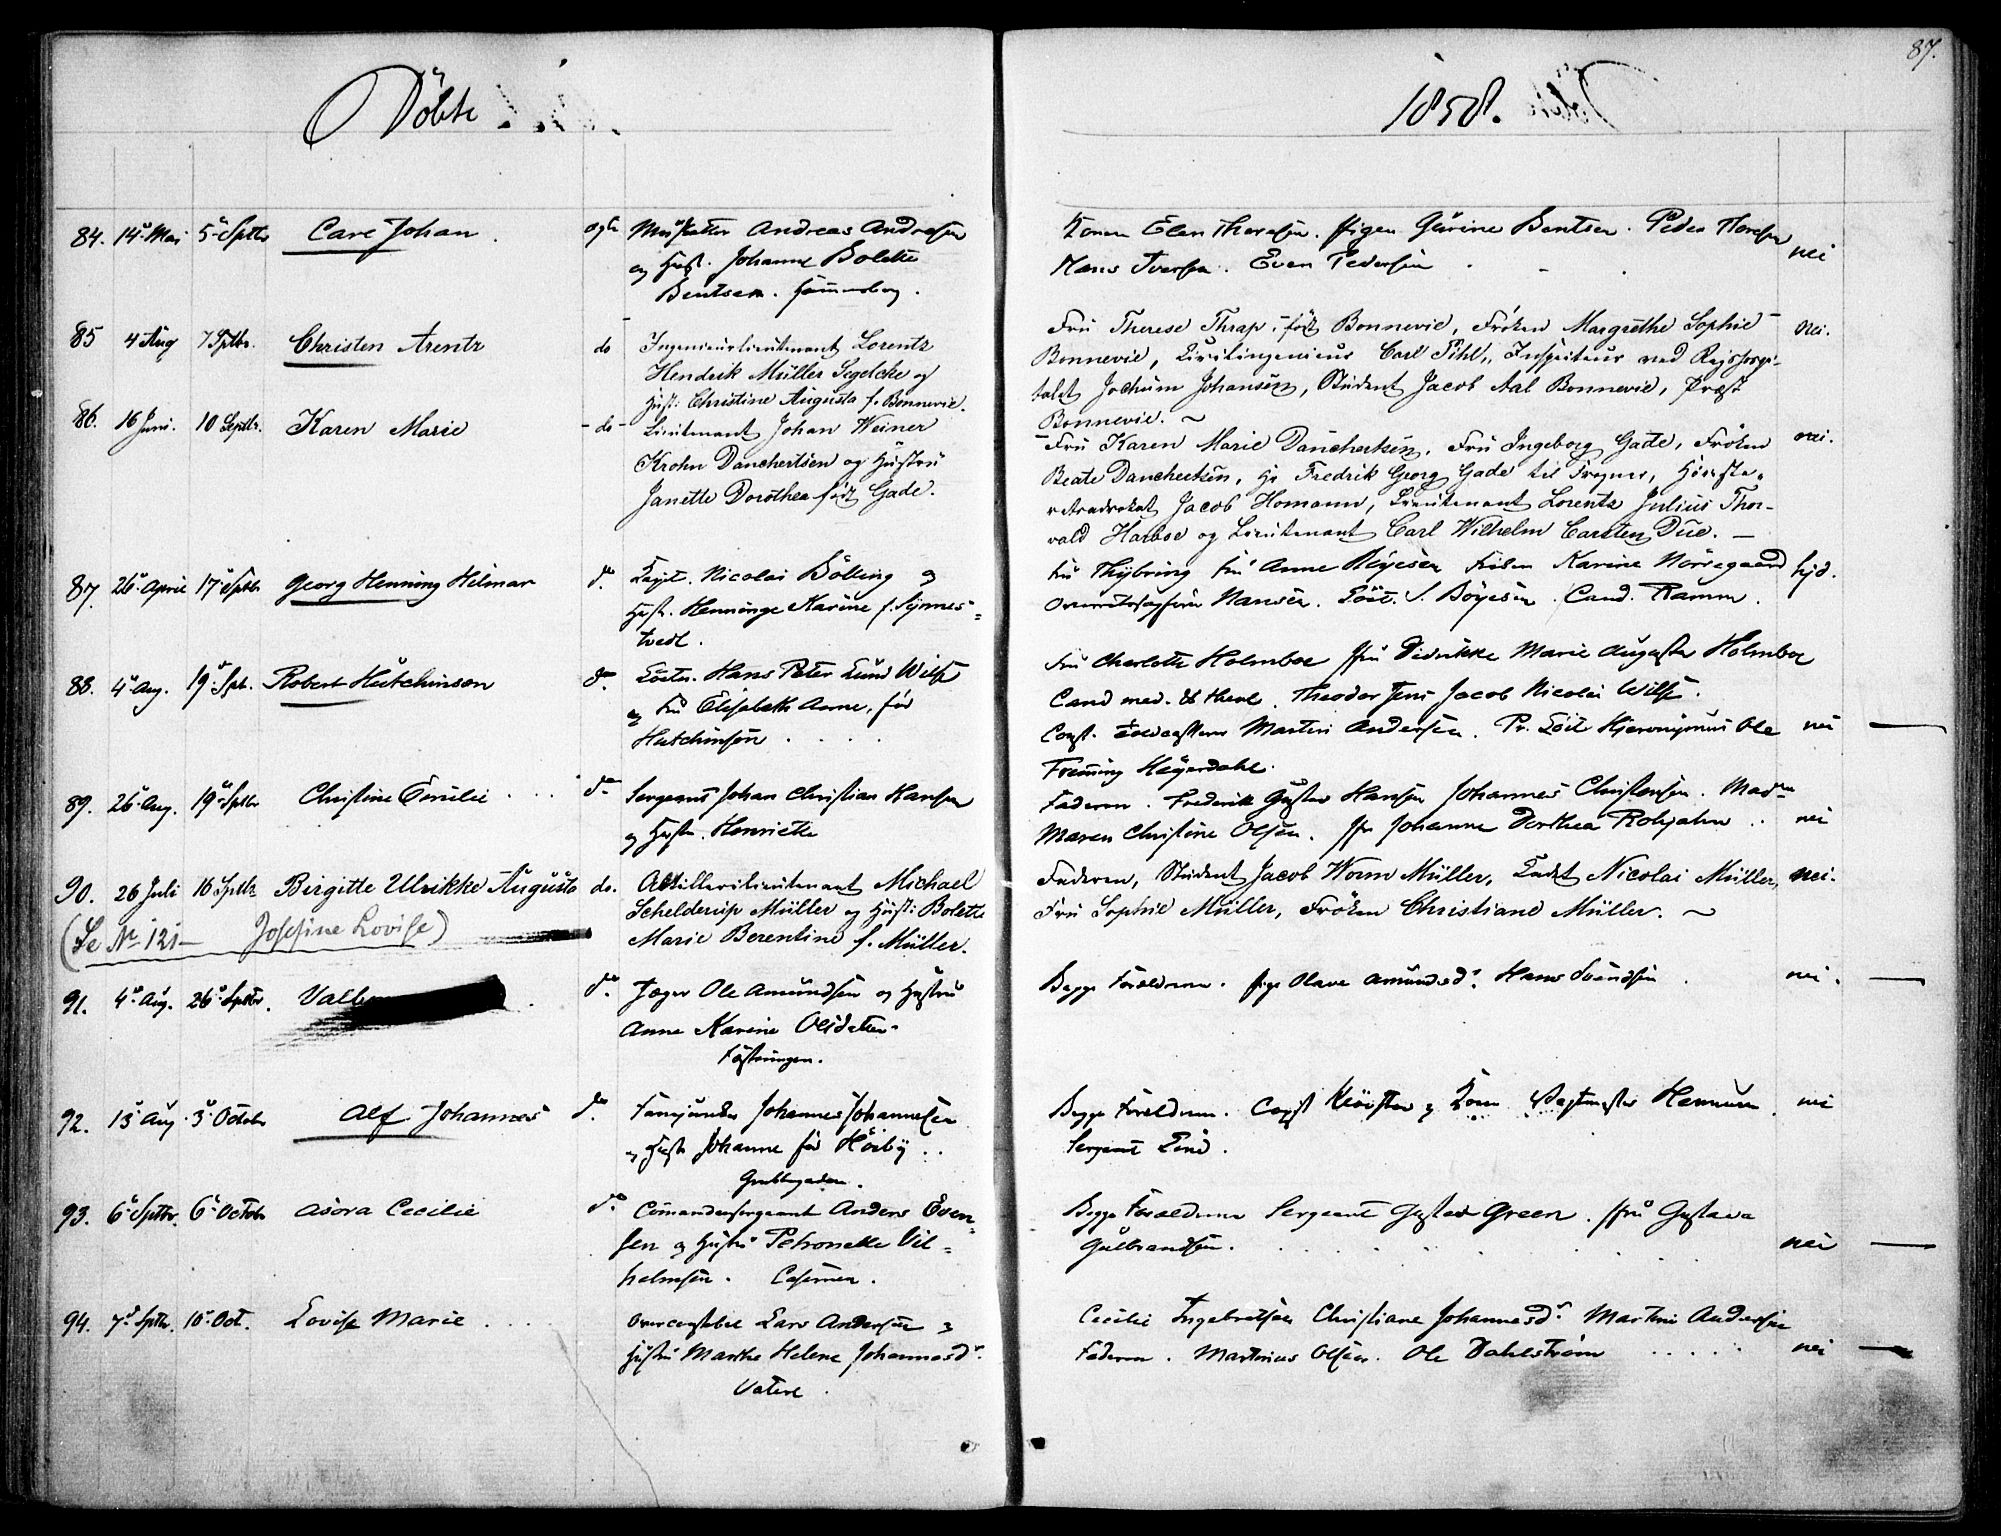 87.
Döbte
1858.
84. 14de Mai 5te Sptbr Carl Johan. ægte Andreas Andresen
og Hust. Johanne Bolette
Bentsen.
Konen Elen Thoresen. Pigen Gurine Bentsen. Peder Thoresen
Hans Iversen. Even Pedersen
nei
85 4 Aug 7 Sptbr. Christen Arentz do Ingenieurlieutenant Lorentz
Hendrik Müller Segelcke og
Hust: Christine Augusta f. Bonnevie.
Fru Therese Thrap, född Bonnevie, Fröken Margrethe Sophie
Bonnevie, Civilingenieur Carl Pihl, Inspecteur ved Rigshospi-
talet Jochum Johansen, Student Jacob Aal Bonnevie, Præst
Bonnevie.
nei.
86. 16 Juni. 10 Septbr. Karen Marie - do - Lieutenant Johan Weiner
Krohn Danchertsen og Hustru
Janette Dorothea född Gade.
Fru Karen Marie Danchertsen, Fru Ingeborg Gade, Fröken
Beate Danchertsen, Hr Fredrik Georg Gade til Frogner, Höieste-
retsadvokat Jacob Homann, Lieutenant Lorentz Julius Thor-
vald Harboe og Lieutenant Carl Wilhelm Carsten Due.
nei.
87. 26de April 17de Sptbr Georg Henning Helmar do. Capt. Nicolai Bölling og
Hust. Henninge Karine f. Synnes-
tvedt.
Fru Thybring Fru Anne Böyesen Frken Karine Nörregaard
Overretssagförer Nansen. S. Böyesen. Cand. Ramm.
hjd.
88. 4de Aug. 19de Spt. Robert Hutchinson do. Hans Peter Lund Wilse
og Fru Elisabeth Anne, född
Hutchinson
Fru Charlotte Holmboe Fru Didrikke Marie Augusta Holmboe
Cand med. Theodor Jens Jacob Nicolai Wilse.
Const. Martin Andersen. Pr. Löit Hjeronymus Ole
Fleming Heyerdahl.
nei
89. 26de Aug. 19de Sptbr Christine Emilie do. Sergeant Johan Christian Hansen
og Hustr. Henriette
Faderen. Frederik Gustav Hansen Johannes Christensen. Mad.
Maren Christine Olsen. Johanne Dorthea
nei
90. 26 Juli 16 Sptbr Birgitte Ulrikke Augusta do. Artillerilieutenant Michael
(Se No 121 - Josefine Lovise)
Schelderup Müller og Hust: Bolette
Marie Berentine f. Müller.
Faderen, Student Jacob Worm Müller, Cadet Nicolai Müller,
Fru Sophie Müller, Fröken Christiane Müller.
nei.
91. 4de Aug. 26de Sptbr. do. Jæger Ole Amundsen og Hustru
Anne Karine Olsdatter.
Fæstningen.
Begge Forældrene. Pige Olava Amundsd. Hans Svendsen
nei.
92. 13de Aug. 3de Octobr Alf Johannes do. Fanejunker Johannes Johannesen
og Hust. Johanne född Höiby
Grubbegaden.
Begge Forældrene. og Kone Vagtmester
Sergeant Lind.
nei
93. 6te Sptbr. 6te Octobr Asora Cecilie do. Comandersergeant Anders Even-
sen og Hustru Petronelle Vil-
helmsen. Casernen.
Begge Forældrene Sergeant Gustav Green. Fru Gustava
Gulbrandsen.
nei
94. 7de Sptbr. 10de Oct. Lovise Marie Overconstabel Lars Andersen og
Hustru Marthe Helene Johannesdr.
Vaterl.
Cecilie Ingebretsen Christiane Johannesdr. Martin Andersen
Faderen. Martinius Olsen. Ole Dahlström
nei